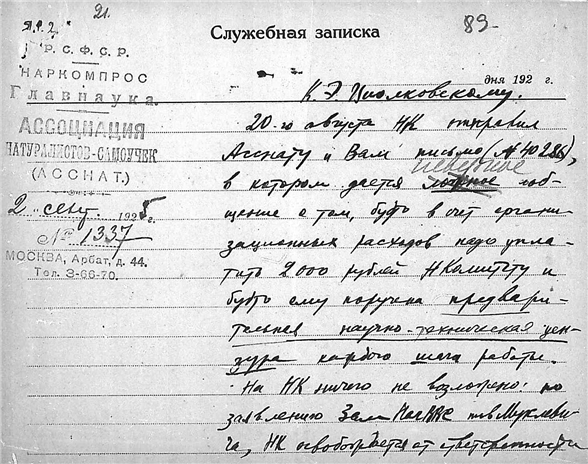 21.
89
Служебная записка
Р.С.Ф.С.Р.
НАРКОМПРОС
Главнаука.
АССОЦИАЦИЯ
НАТУРАЛИСТОВ-САМОУЧЕК
(АССНАТ.)
2 сент. 1925.
№ 1337
МОСКВА, Арбат, д. 44.
Тел. 3-66-70.
дня 192 г.
К. Э. Циолковскому.
20-го августа НК отправил
Асснату и Вам письмо (№ 40286),
неверное
в котором дается сооб-
щение о том, будто в счет органи-
зационных расходов надо упла-
тить 2000 рублей НКомитету и
будто ему поручена предвари-
тельная научно-техническая цен-
зура каждого шага работы.
На НК ничего не возложено: по
заявлению Зам тов Муклеви-
ча, НК освобождается от ответственности